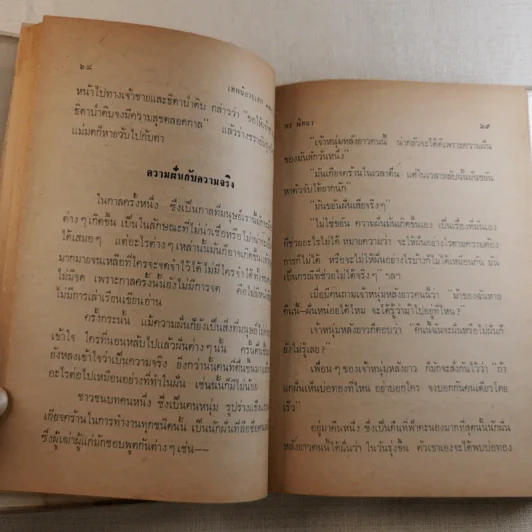 ๖๘
เทพนิยาย
หน้าไปทางเจ้าชายและธิดาป่าดิบ กล่าวว่า "ขอให้เจ้า
ธิดาป่าดิบจงมีความสุขตลอดกาล" แล้วร่าง
แม่มดก็หายวับไปกับตา
ความฝันกับความจริง
ในกาลครั้งหนึ่ง ซึ่งเป็นกาลที่มนุษย์เรา
ต่างๆ เกิดขึ้น เป็นในลักษณะที่ไม่น่าเชื่อหรือไม่น่า
ได้เสมอๆ แต่อะไรต่างๆ เหล่านั้นมันก็อาจเกิดขึ้น
มากมายจนเหลือที่ใครจะจดจำไว้ได้ ไม่มีใครจำได้
ไม่มีจด เพราะกาลครั้งนั้นยังไม่มีการจด คือไม่มี
ไม่มีการเล่าเรียนเขียนอ่าน
ครั้งกระนั้น แม้ความฝันก็ยังเป็นสิ่งที่มนุษย์
เข้าใจ ใครที่นอนหลับไปแล้วฝันต่างๆ นั้น ครั้นตื่น
ยังหลงเข้าใจว่าเป็นความจริง ยิ่งกว่านั้นคนที่ตื่นขึ้นมา
อะไรต่อไปเหมือนอย่างที่ทำในฝัน เช่นนั้นก็มีไม่น้อย
ชาวชนบทคนหนึ่ง ซึ่งเป็นคนหนุ่ม รูปร่างแข็งแรง
เกียจคร้านในการทำงานทุกชนิดนั้น เป็นนักฝันที่ลือชื่อ
ซึ่งผู้เฒ่าผู้แก่มักชอบพูดกันต่างๆ เช่น——
พร
๖๙
"เจ้าหนุ่มหลังยาวคนนี้ น่ากลัวจะได้ดีเพราะความฝัน
ของมันสักวันหนึ่ง"
"มันเกียจคร้านในเวลาตื่น แต่ในเวลาหลับนั้นมันขยัน
หาตัวจับได้ยากนัก"
"มันขยันฝันเสียจริงๆ"
"ไม่ใช่ขยัน ความฝันมันเกิดขึ้นเอง เป็นเรื่องที่มันเอง
ก็ช่วยอะไรไม่ได้ หมายความว่า จะให้ฝันอย่างไรตามความต้อง
การก็ไม่ได้ หรือจะไม่ให้ฝันอย่างไรบ้างก็ไม่ได้เหมือนกัน มัน
เป็นกรณีที่ช่วยไม่ได้จริงๆ" ฯลฯ
เมื่อมีคนถามเจ้าหนุ่มหลังยาวคนนี้ว่า ม้าของฉันหาย
คืนนี้—ฝันหน่อยได้ไหม จะได้รู้ว่าม้าไปอยู่ที่ไหน?
เจ้าหนุ่มหลังยาวก็ตอบว่า "คืนนี้ฉันจะฝันหรือไม่ฝันก็
ยังไม่รู้เลย?
เพื่อนๆ ของเจ้าหนุ่มหลังยาว ก็มักจะสั่งกันไว้ว่า "ถ้า
แกฝันเห็นบ่อทองที่ไหน อย่าบอกใคร จงบอกกันคนเดียวโดย
เร็ว"
อยู่มาคืนหนึ่ง ซึ่งเป็นคืนที่ฟ้าคะนองมากที่สุดนั้นนักฝัน
หลังยาวคนนี้ได้ฝันว่า ในวันรุ่งขึ้น ตัวเขาเองจะได้พบบ่อทอง